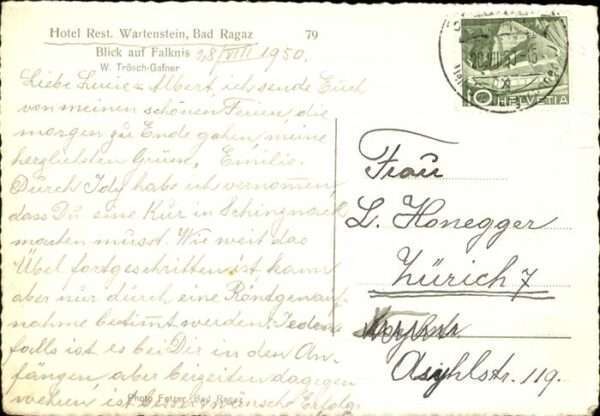 Hotel Rest. Wartenstein, Bad Ragaz 79
Blick auf Falknis 28/VIII 1950.
W. Trösch-Gafner
Liebe Luise u. Albert, ich sende Euch
von meinen schönen Ferien, die
morgen zu Ende gehen, meine
herzlichsten Grüsse, Emilie.
Durch Idy habe ich vernommen,
dass Du eine Kur in Schinznach
machen müsst. Wie weit das
Übel fortgeschritten ist kann
aber nur durch eine Röntgenauf-
nahme bestimmt werden. Jeden-
falls ist es bei Dir in den An-
fängen, aber beizeiten dagegen
ist besser, wünsche Erfolg.
Photo Fetzer, Bad Ragaz
10 HELVETIA
Frau
L. Honegger
Zürich 7
Asylstr. 119.